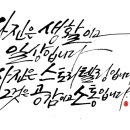 사진은 생활이고
일상입니다
사진은 스토리텔링입니다
그것은 공감이고 소통입니다